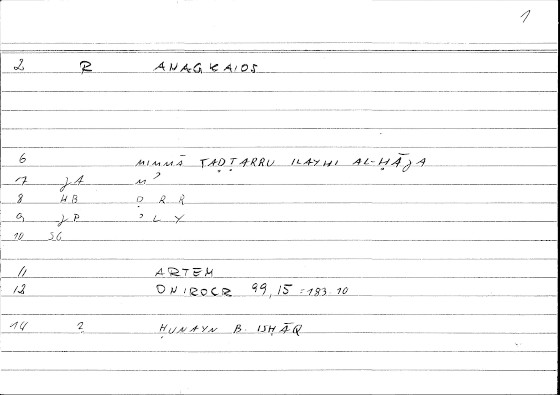 1
2 R ANAGKAIOS
6 MIMMĀ TAḌṬARRU ILAYHI AL-ḤĀǧA
7 JA M'
8 HB Ḍ R R
9 JP ' L Y
10 SG
11 ARTEM
12 ONIROCR 99,15 = 183.10
14 2 ḤUNAYN B. ISḤĀQ